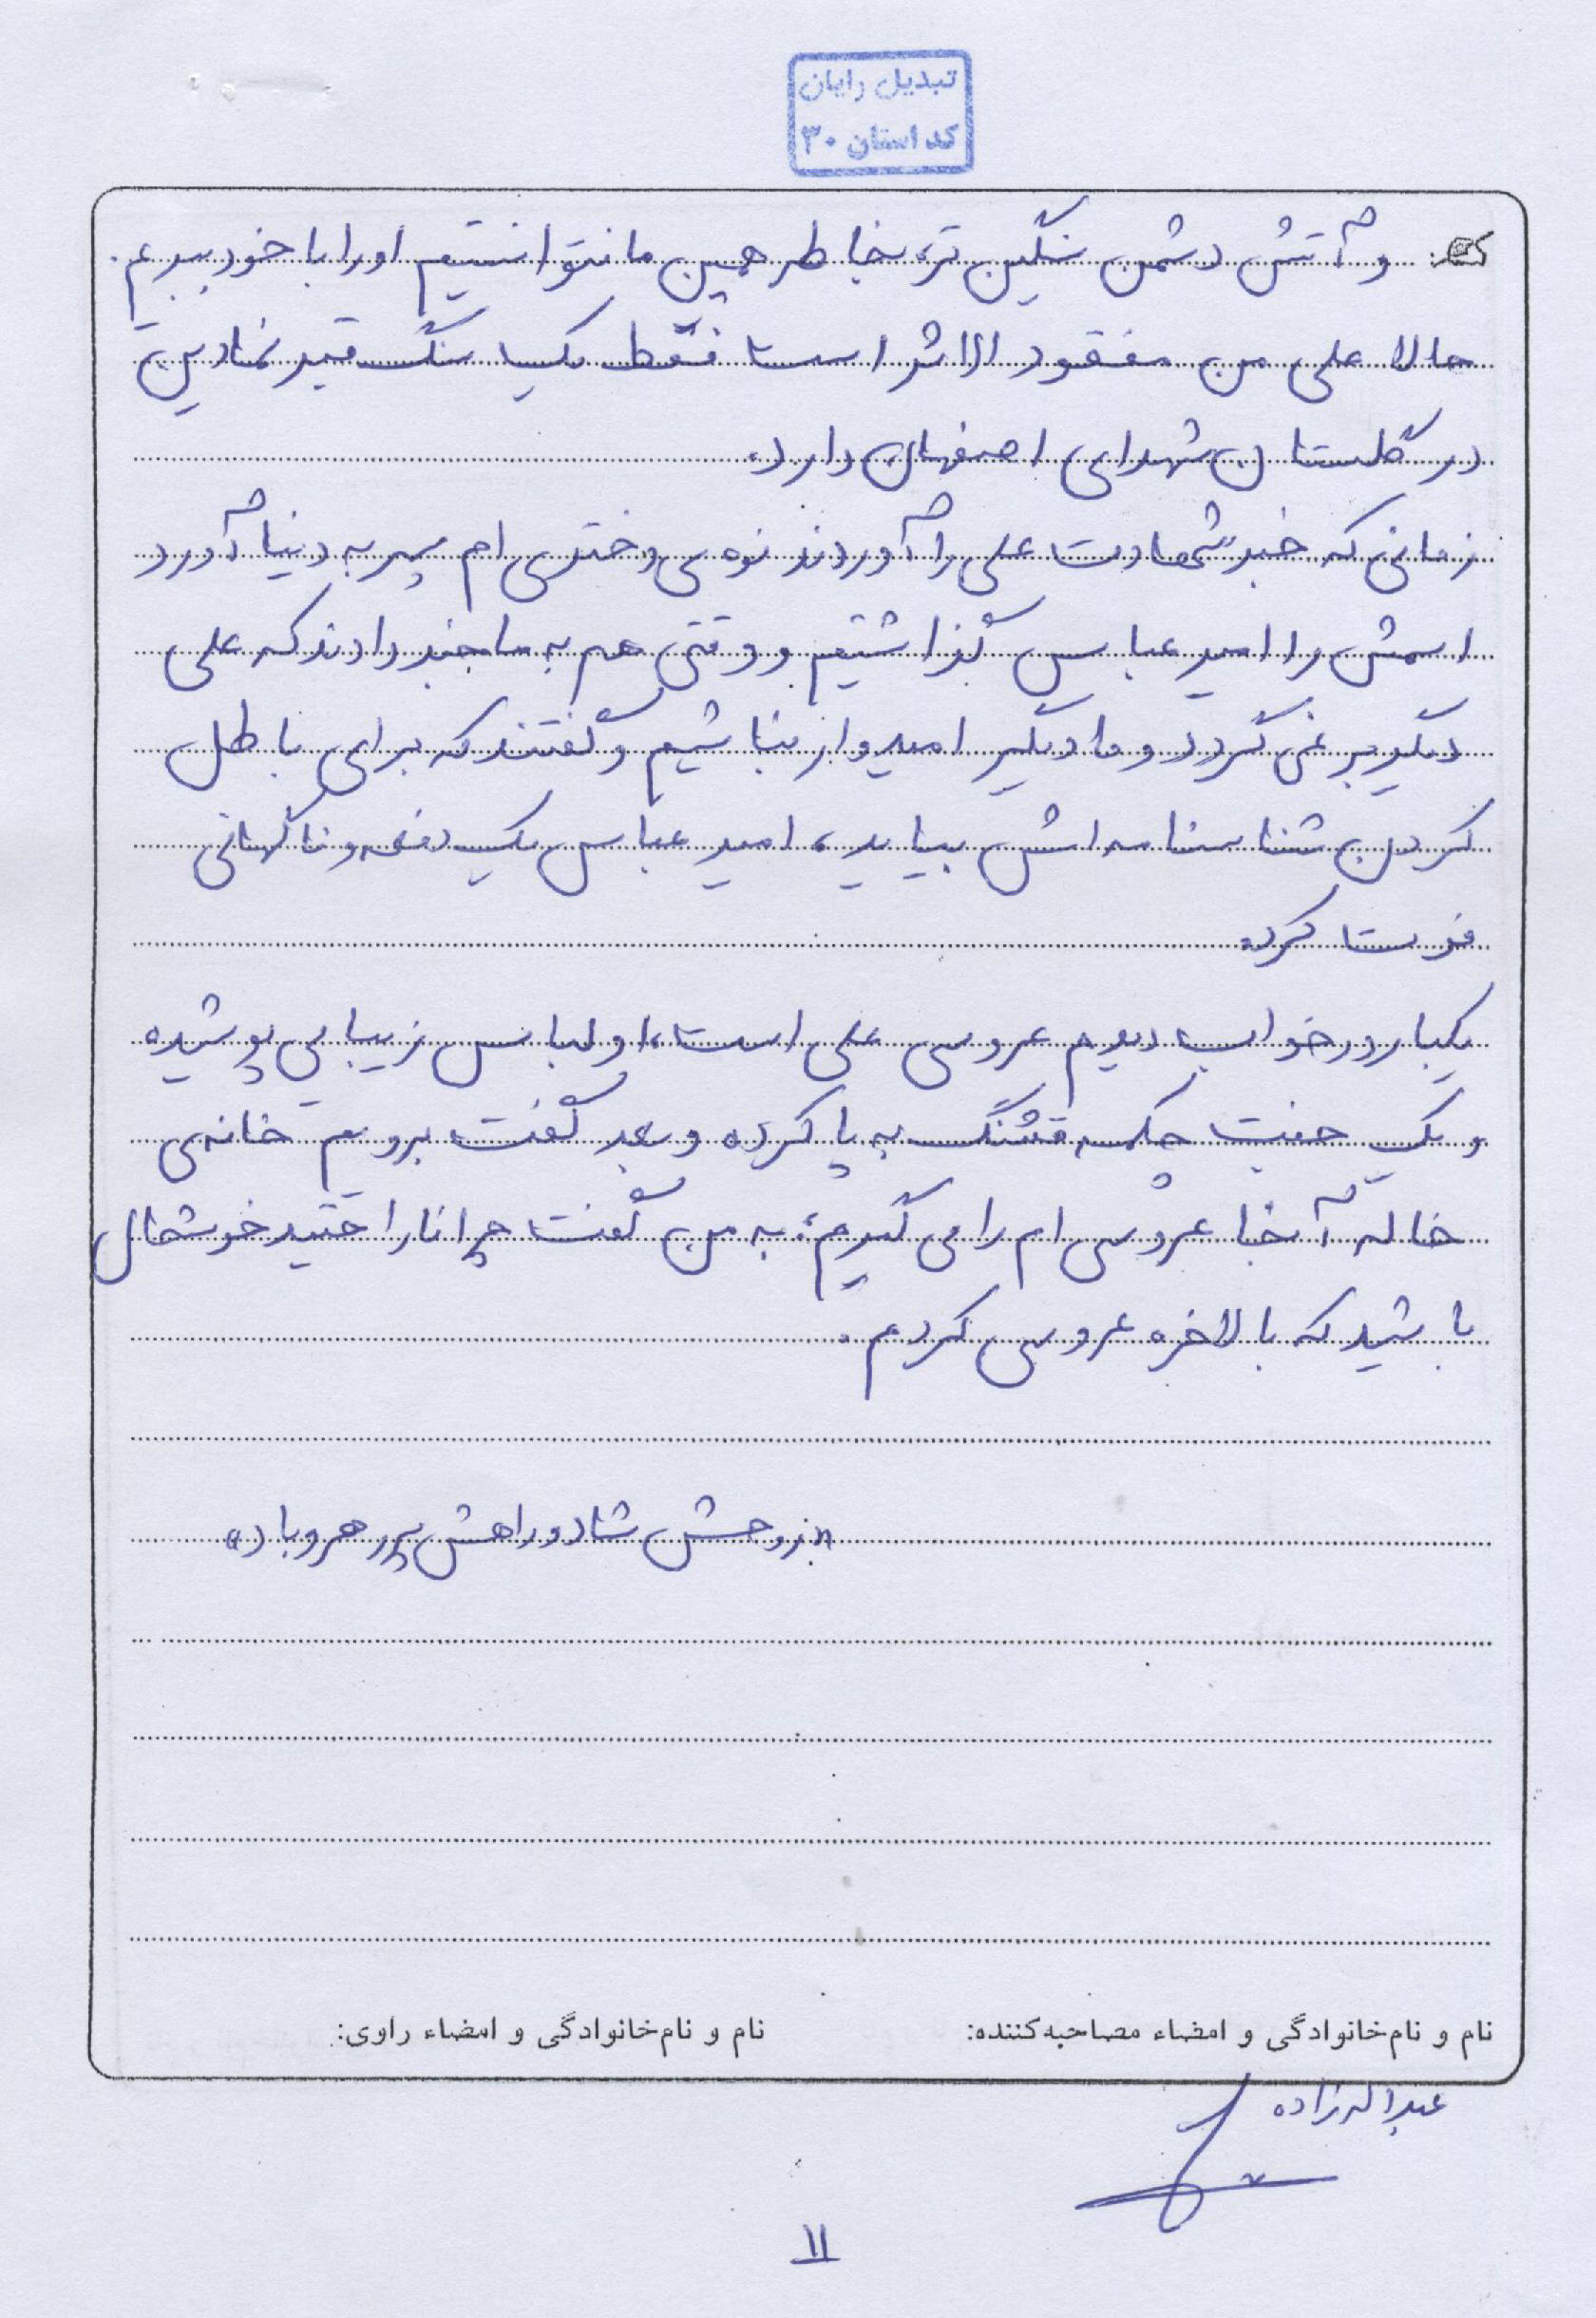 تبدیل رایان
کد استان ۳۰
و آتش دشمن سنگین تر، بخاطر همین ما نتوانستیم او را با خود ببریم.
حالا علی من مفقود الاثر است فقط یک سنگ قبر نمادین
در گلستان شهدای اصفهان دارد.
زمانی که خبر شهادت علی را آوردند نوه ی دختری ام پسر به دنیا آورد
اسمش را امیر عباس گذاشتیم و وقتی هم به ما خبر دادند که علی
دیگر بر نمی گردد و ما دیگر امیدوار نباشیم و گفتند که برای باطل
کردن شناسنامه اش بیایید، امیر عباس یک دفعه و ناگهانی
فوت کرد.
یکبار در خواب دیدم عروسی علی است، او لباس زیبایی پوشیده
و یک جفت چکمه قشنگ به پا کرده و بعد گفت برویم خانه ی
خاله آنجا عروسی ام را می گیریم؛ به من گفت چرا ناراحتید خوشحال
باشید که بالاخره عروسی کردم.
«روحش شاد و راهش پر رهرو باد»
نام و نام‌خانوادگی و امضاء مصاحبه‌کننده:
نام و نام‌خانوادگی و امضاء راوی:
عبداله زاده
۱۱